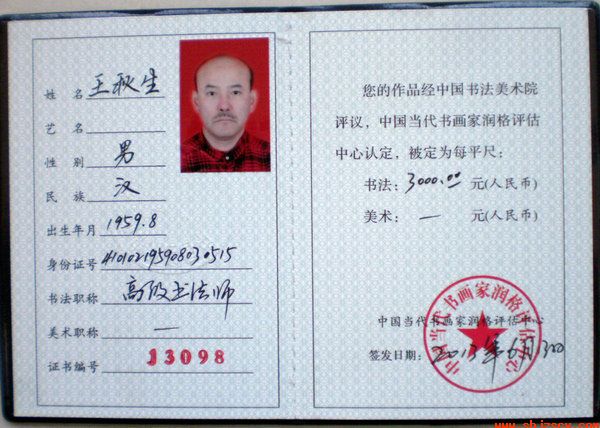 姓 名 王秋生
艺 名
性 别 男
民 族 汉
出生年月 1959.8
身份证号 410102195908030515
书法职称 高级书法师
美术职称 一
证书编号 J3098
您的作品经中国书法美术院
评议，中国当代书画家润格评估
中心认定，被定为每平尺：
书法：3000.00 元(人民币)
美术：一 元(人民币)
中国当代书画家润格评估中心
中国当代书画家润格评估中心
签发日期：2013年6月30日